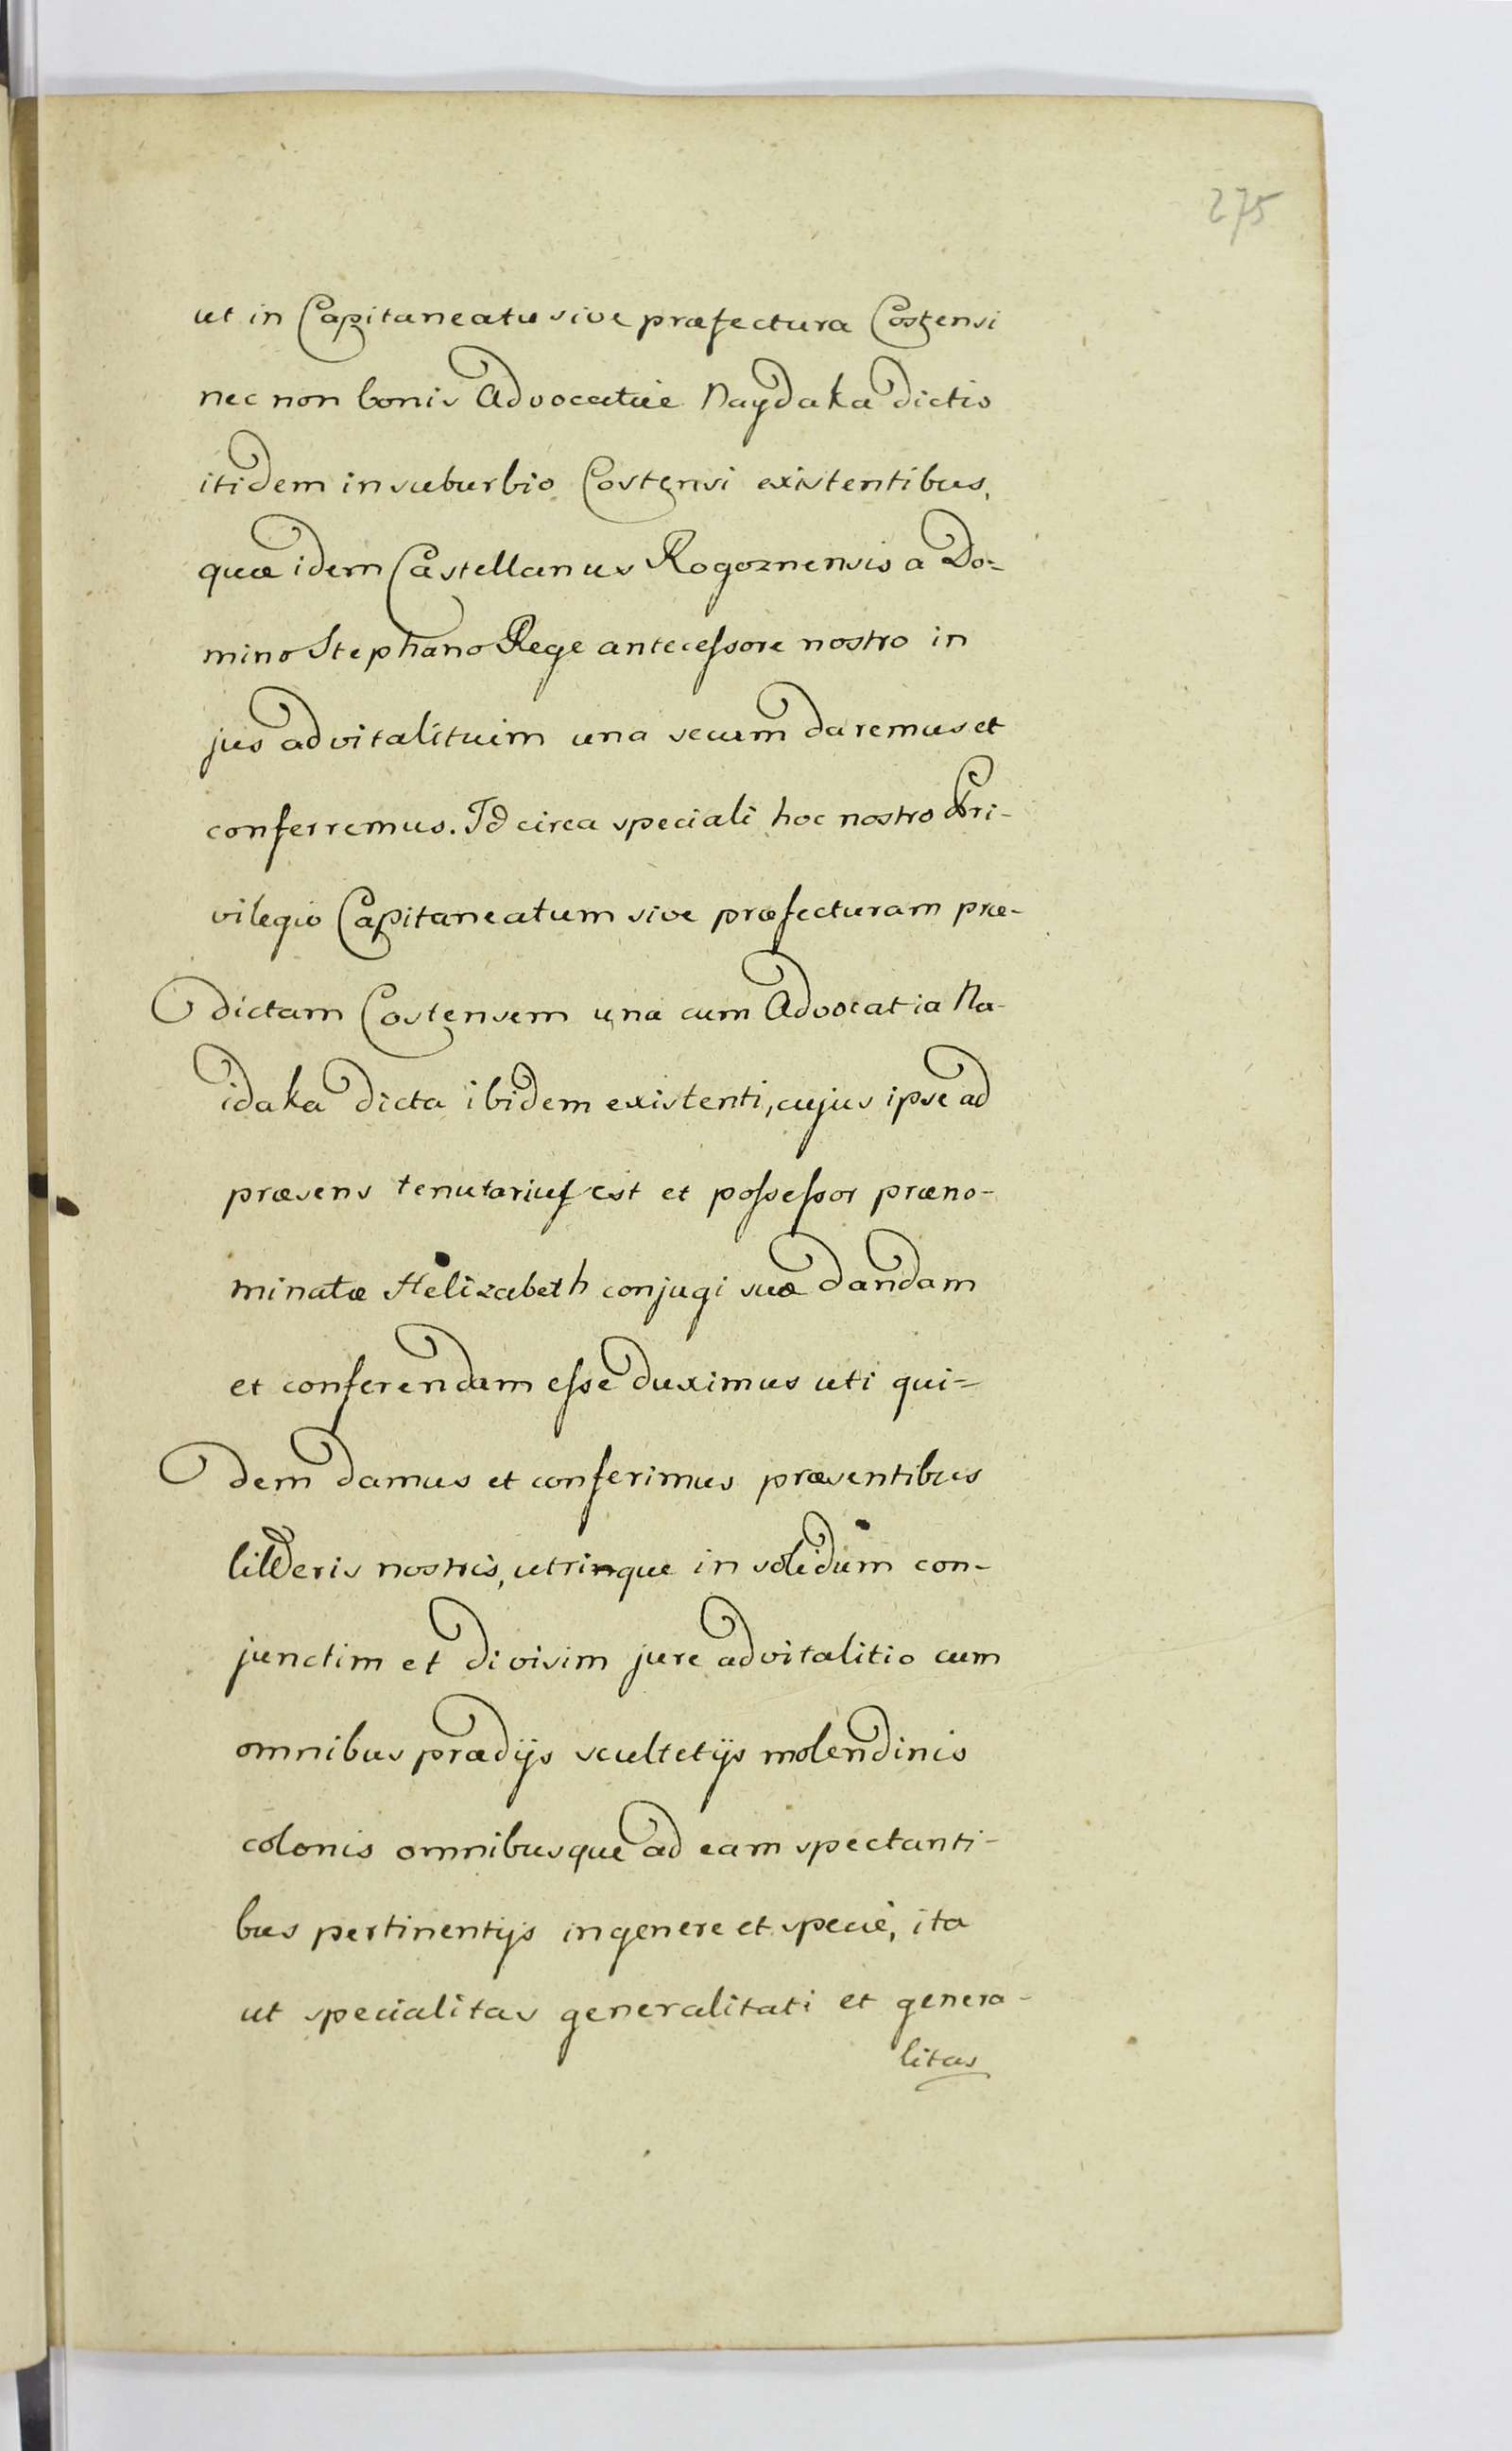 275
ut in Capitaneatu sive præfectura Costensi
nec non bonis Advocatiæ Naydaka dictis
itidem in suburbio Costensi existentibus,
quæ idem Castellanus Rogoznensis a Do=
mino Stephano Rege antecessore nostro in
jus advitalituim una secum daremus et
conferremus. Id circa speciali hoc nostro Pri-
vilegio Capitaneatum sive præfecturam præ-
dictam Costensem una cum Advocatia Na-
idaka dicta ibidem existenti, cujus ipse ad
præsens tenutarius est et possessor præno-
minatæ Helizabeth conjugi suæ dandam
et conferendam esse duximus uti qui=
dem damus et conferimus præsentibus
litteris nostris, utrinque in solidum con-
junctim et divisim jure advitalitio cum
omnibus prædijs scultetijs molendinis
colonis omnibusque ad eam spectanti-
bus pertinentijs in genere et specie, ita
ut specialitas generalitati et genera-
litas